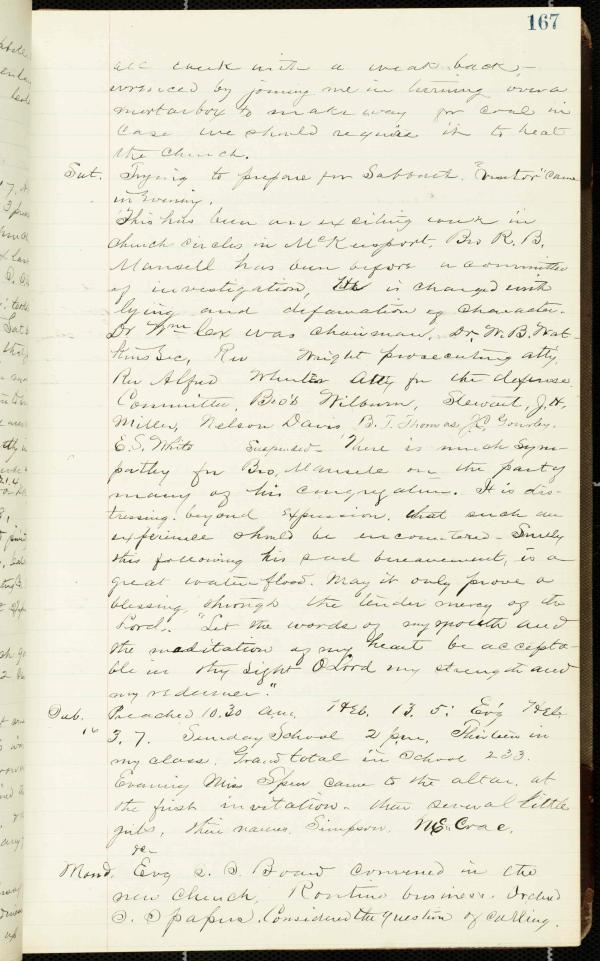 167
all week with a weak back,
produced by joining me in turning over a
mortarbox to make way for coal in
case we should require it to heat
the church.
Sat. Trying to prepare for Sabbath. "Visitor" came
in Evening.
This has been an exciting week in
church circles in McKeesport, Bro R. B.
Mansell has been before a committee
of investigation, He is charged with
lying and defamation of character.
Dr Wm Cox was chairman, Dr. W. B. Wat-
kins Sec, Rev Wright prosecuting atty,
Rev Alfred Wheeler Atty for the defense
Committee, Bro's Wilburn, Stewart, J. H.
Miller, Nelson Davis B. T. Thomas, J. C. Gourley.
E. S. White Suspended - There is much sym-
pathy for Bro, Mansell on the part of
many of his congregation. It is dis-
tressing, beyond expression, that such an
experience should be encountered - Surely
this following his sad bereavement, is a
great water flood. May it only prove a
blessing, through the tender mercy of the
Lord. "Let the words of my mouth and
the meditation of my heart be accepta-
ble in thy sight O Lord my strength and
my redeemer."
Sab. Preached 10.30 a.m. Heb. 13. 5: Ev'g Heb
16 3. 7. Sunday School 2 p.m. Thirteen in
my class. Grand total in School 233.
Evening Miss Spear came to the altar, at
the first invitation - then several little
girls, their names, Simpson, McCrae,
&c -
Mond. Evg S. S. Board convened in the
new church, Routine business. Ordered
S. S papers. Considered the question of calling